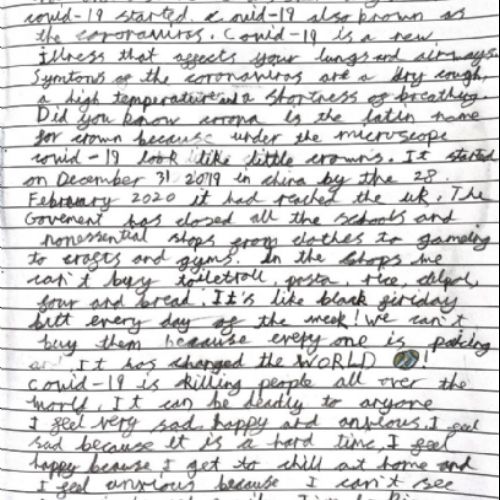 covid-19 started. Covid-19 also known as
the coronavirus. Covid-19 is a new
illness that affects your lungs and airways.
Symtoms of the coronavirus are a dry cough,
a high temperature and a shortness of breathing.
Did you know corona is the latin name
for crown because under the microscope
covid-19 look like little crowns. It started
on December 31 2019 in china by the 28
February 2020 it had reached the uk. The
Goverment has closed all the schools and
nonessential shops from clothes to gameing
to crafts and gyms. In the shops we
can't buy toiletroll, pasta, rice, calpol,
four and bread. It's like black firiday
but every day of the week! We can't
buy them because every one is
It has changed the WORLD !
Covid-19 is killing people all over the
world. It can be deadly to anyone
I feel very sad, happy and anxious. I feel
sad because it is a hard time, I feel
happy becaus I get to chill at home and
I feel anxious because I can't see